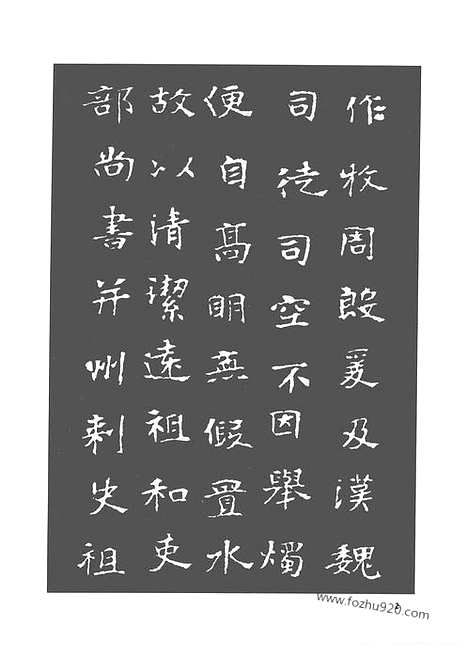 作牧周殷爰及漢魏
司徒司空不因舉燭
便自高明無假置水
故以清潔遠祖和吏
部尚書并州刺史祖
www.fozhu920.com